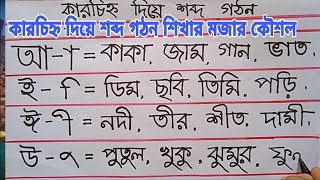 কারচিহ্ন দিয়ে শব্দ গঠন
কারচিহ্ন দিয়ে শব্দ গঠন শিখার মজার কৌশল
আ-া = কাকা, জাম, গান, ভাত,
ই-ি = ডিম, ছবি, তিমি, পড়ি,
ঈ-ী = নদী, তীর, শীত, দামী,
উ-ু = পুতুল, খুকু, ঝুমুর,